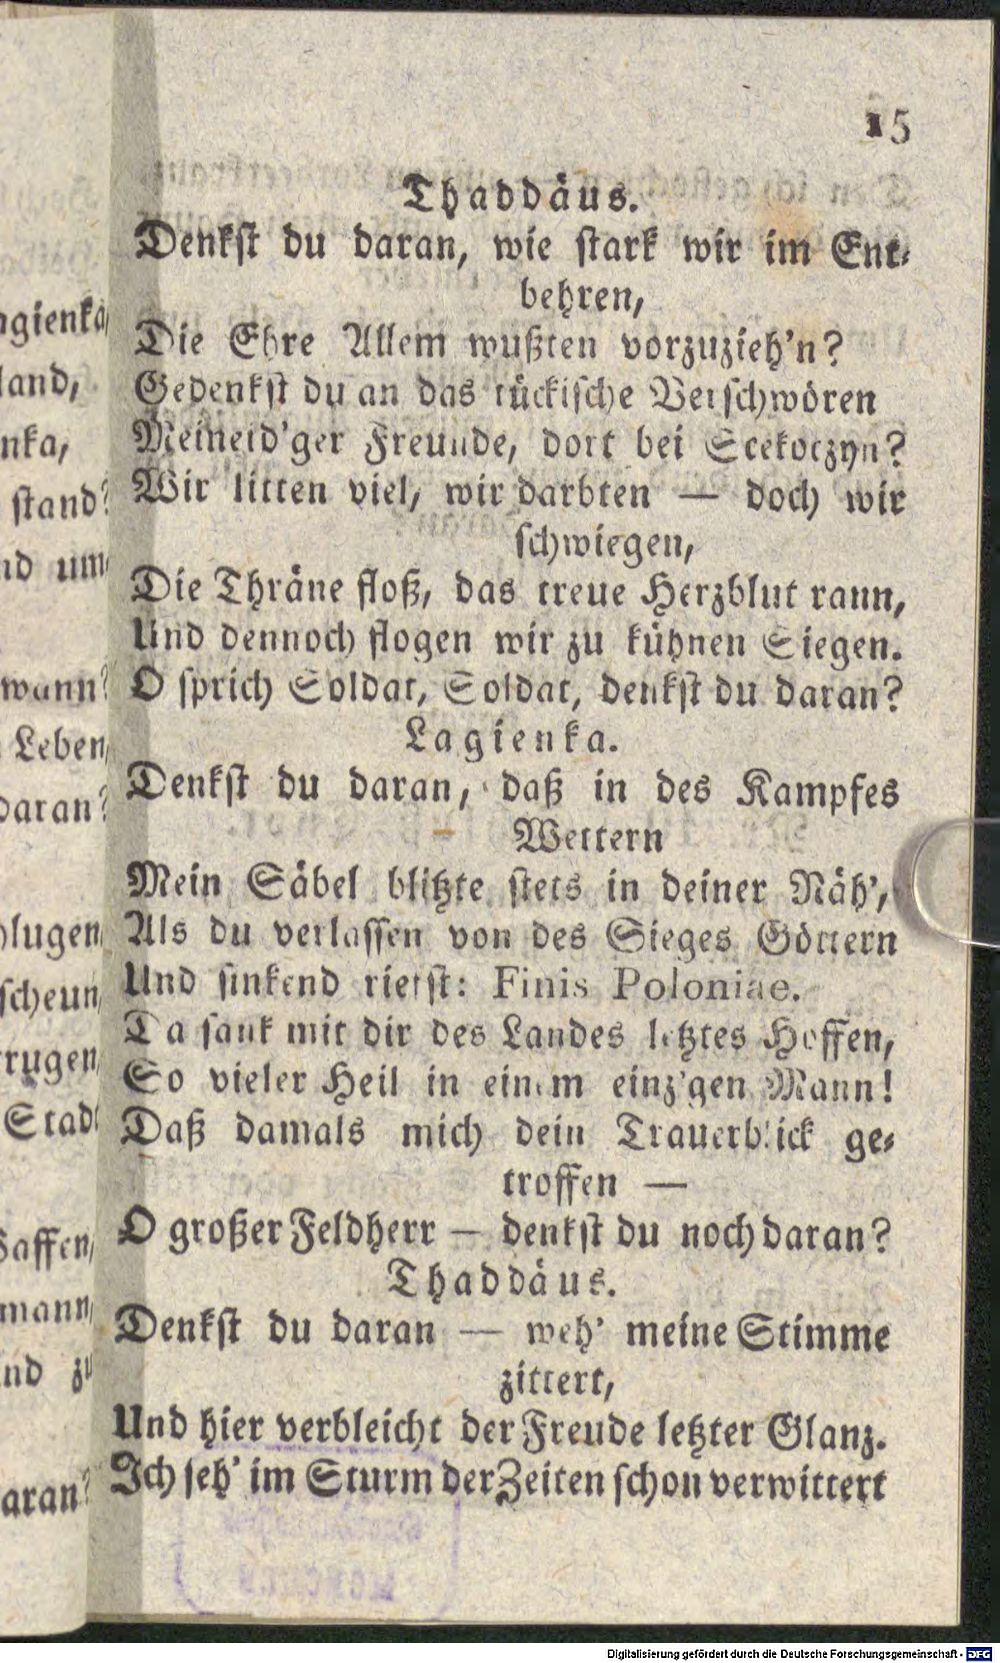 15
Thaddäus.
Denkst du daran, wie stark wir im Ent-
behren,
Die Ehre Allem wußten vorzuzieh'n?
Gedenkst du an das tückische Verschwören
Meineid'ger Freunde, dort bei Scekoczyn?
Wir litten viel, wir darbten — doch wir
schwiegen,
Die Thräne floß, das treue Herzblut rann,
Und dennoch flogen wir zu kühnen Siegen.
O sprich Soldat, Soldat, denkst du daran?
Lagienka.
Denkst du daran, daß in des Kampfes
Wettern
Mein Säbel blitzte stets in deiner Näh',
Als du verlassen von des Sieges Göttern
Und sinkend riefst: Finis Poloniae.
Da sank mit dir des Landes letztes Hoffen,
So vieler Heil in einem einz'gen Mann!
Daß damals mich dein Trauerblick ge-
troffen —
O großer Feldherr — denkst du noch daran?
Thaddäus.
Denkst du daran — weh' meine Stimme
zittert,
Und hier verbleicht der Freude letzter Glanz.
Ich seh' im Sturm der Zeiten schon verwittert
Digitalisierung gefördert durch die Deutsche Forschungsgemeinschaft - DFG